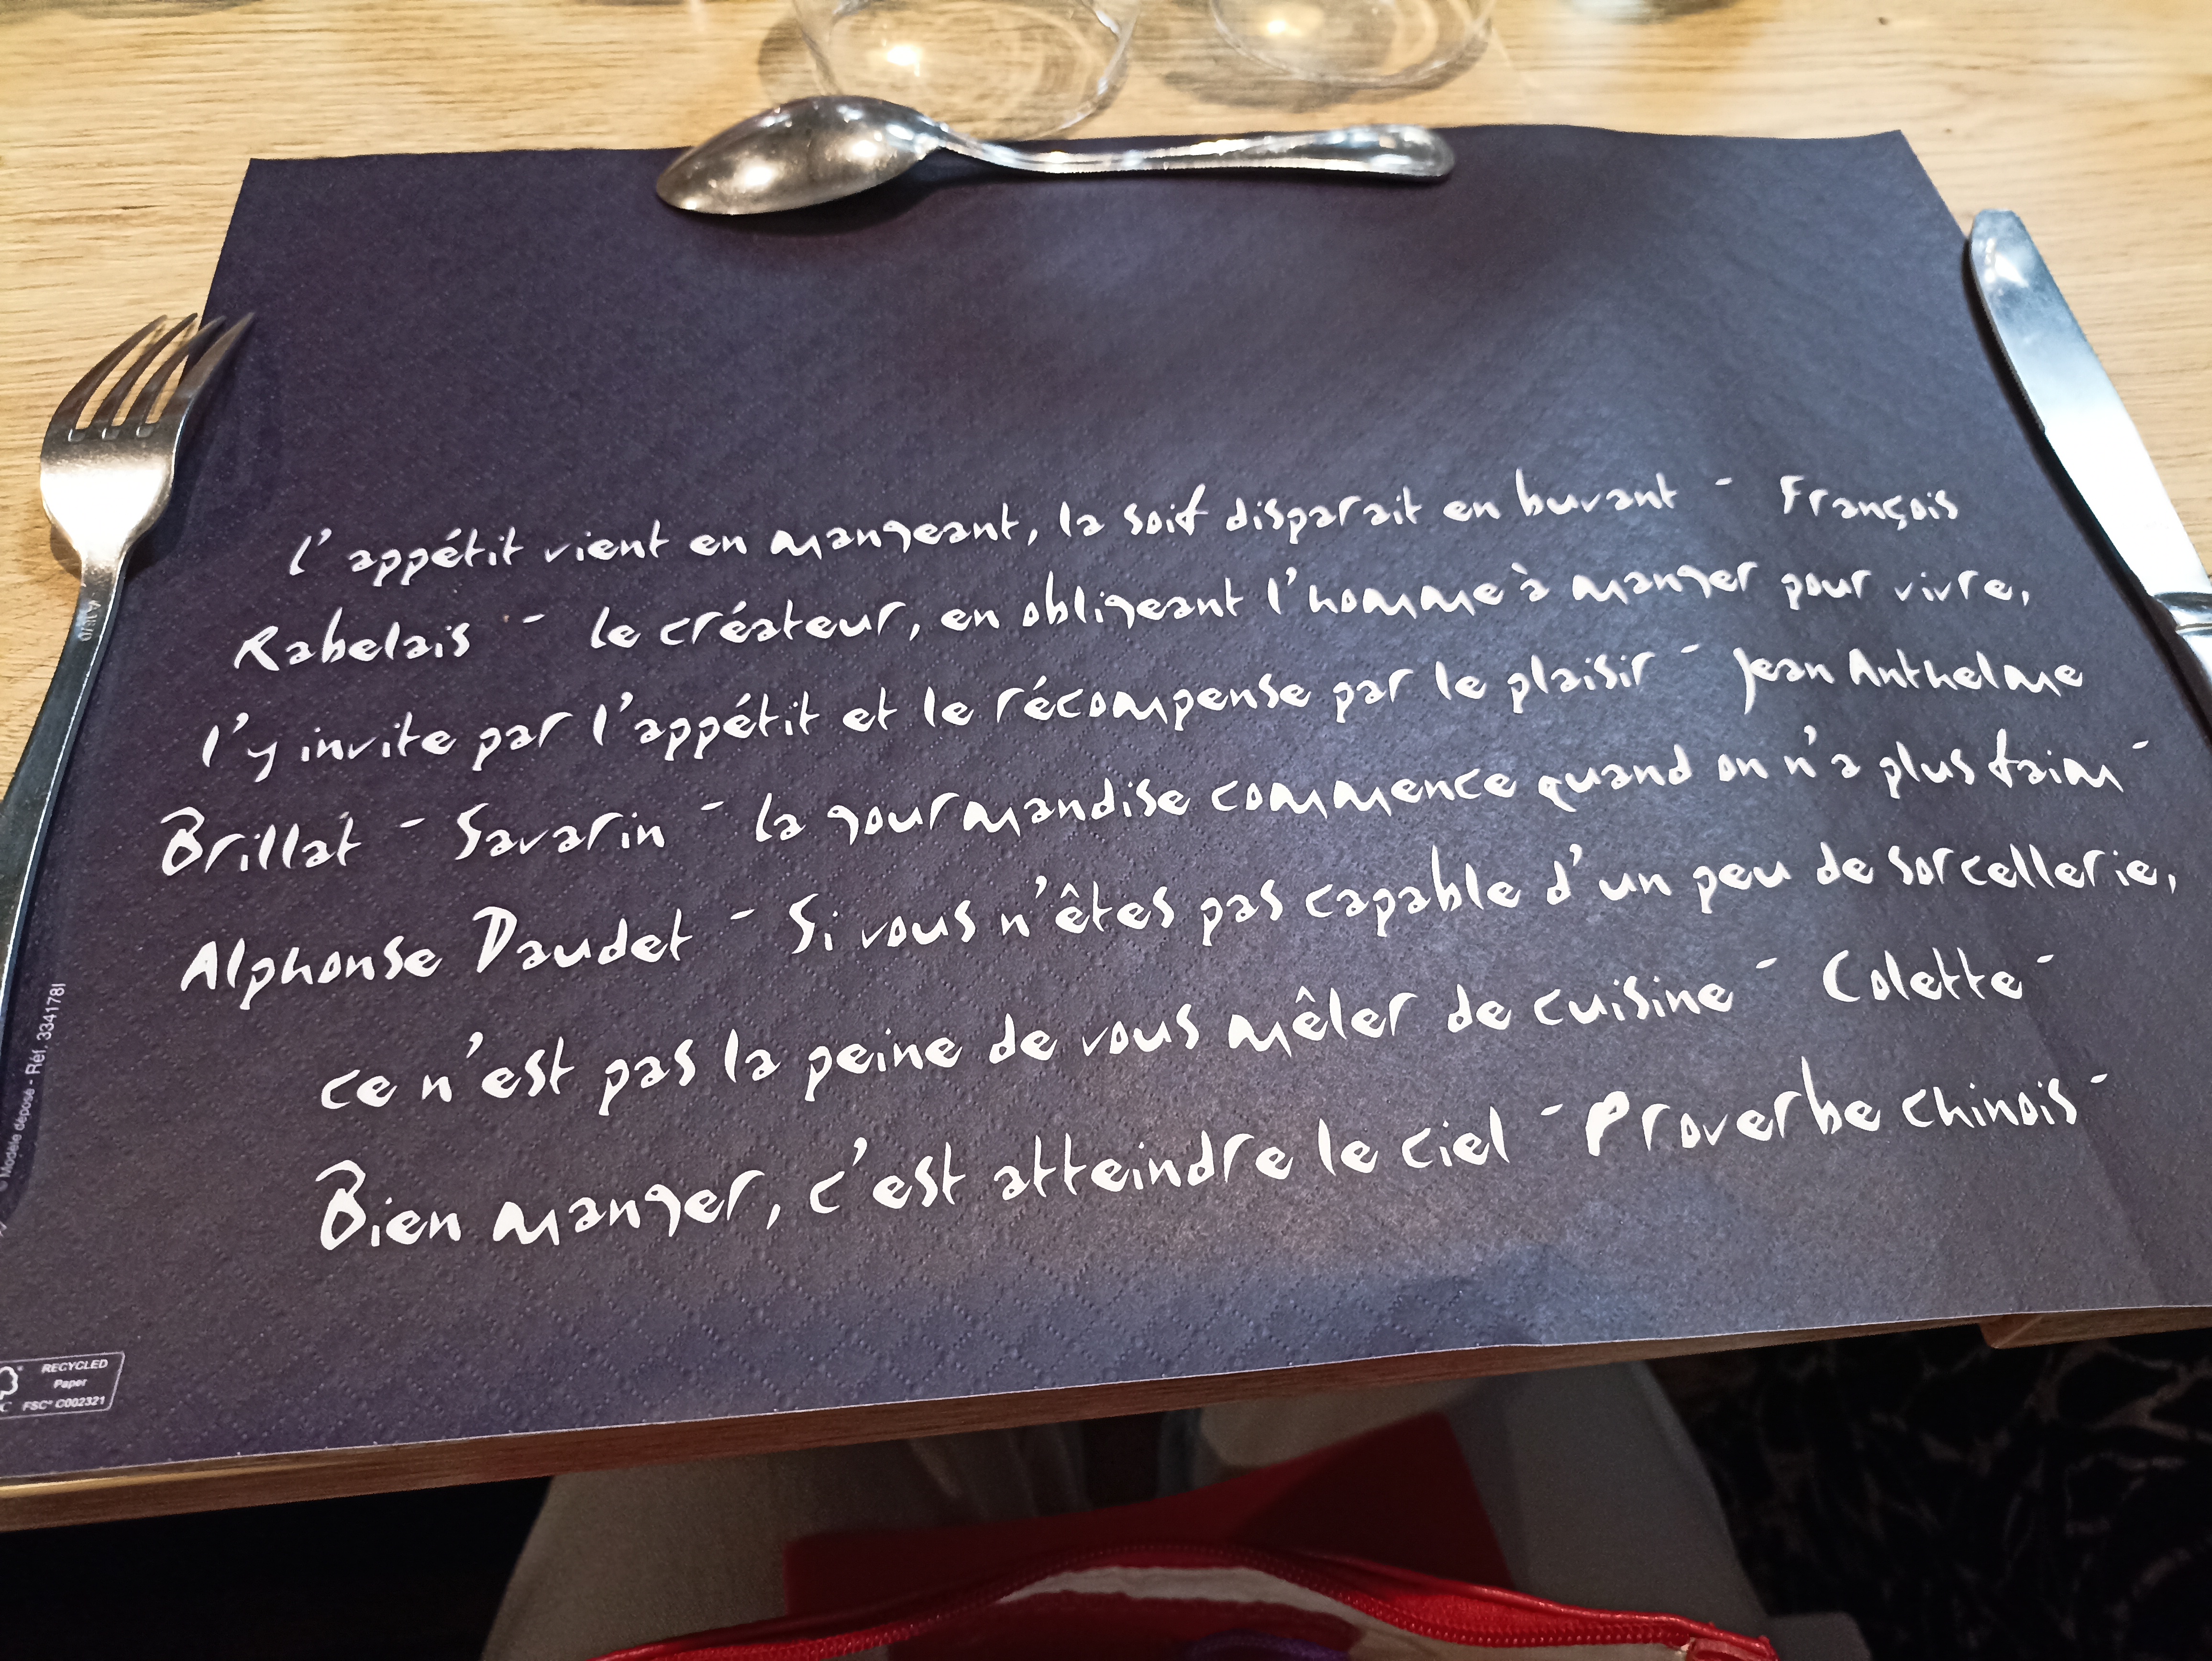 l'appétit vient en mangeant, la soif disparait en buvant - François
Rabelais - le créateur, en obligeant l'homme à manger pour vivre,
l'y invite par l'appétit et le récompense par le plaisir - Jean Anthelme
Brillat - Savarin - la gourmandise commence quand on n'a plus faim -
Alphonse Daudet - Si vous n'êtes pas capable d'un peu de sorcellerie,
ce n'est pas la peine de vous mêler de cuisine - Colette -
Bien manger, c'est atteindre le ciel - Proverbe chinois -
Modèle déposé - Réf. 3341781
RECYCLED
Paper
FSC® C002321